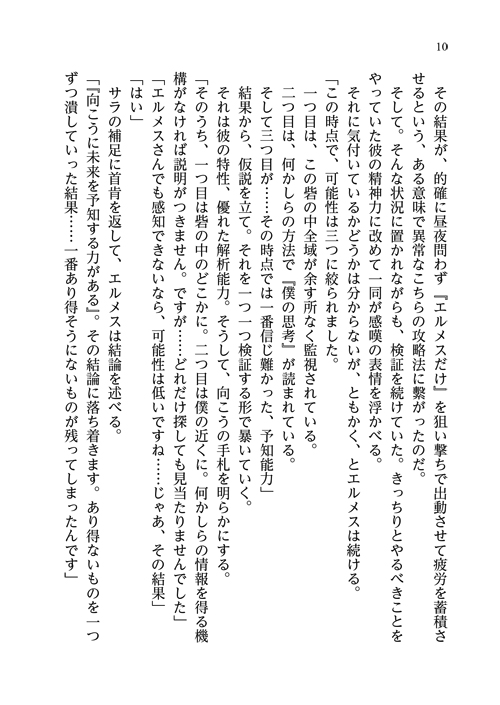 10
その結果が、的確に昼夜問わず『エルメスだけ』を狙い撃ちで出動させて疲労を蓄積さ
せるという、ある意味で異常なこちらの攻略法に繋がったのだ。
そして。そんな状況に置かれながらも、検証を続けていた。きっちりとやるべきことを
やっていた彼の精神力に改めて一同が感嘆の表情を浮かべる。
それに気付いているかどうかは分からないが、ともかく、とエルメスは続ける。
「この時点で、可能性は三つに絞られました。
一つ目は、この砦の中全域が余す所なく監視されている。
二つ目は、何かしらの方法で『僕の思考』が読まれている。
そして三つ目が……その時点では一番信じ難かった、予知能力」
結果から、仮説を立て。それを一つ一つ検証する形で暴いていく。
それは彼の特性、優れた解析能力。そうして、向こうの手札を明らかにする。
「そのうち、一つ目は砦の中のどこかに。二つ目は僕の近くに。何かしらの情報を得る機
構がなければ説明がつきません。ですが……どれだけ探しても見当たりませんでした」
「エルメスさんでも感知できないなら、可能性は低いですね……じゃあ、その結果」
「はい」
サラの補足に首肯を返して、エルメスは結論を述べる。
「『向こうに未来を予知する力がある』。その結論に落ち着きます。あり得ないものを一つ
ずつ潰していった結果……一番あり得そうにないものが残ってしまったんです」